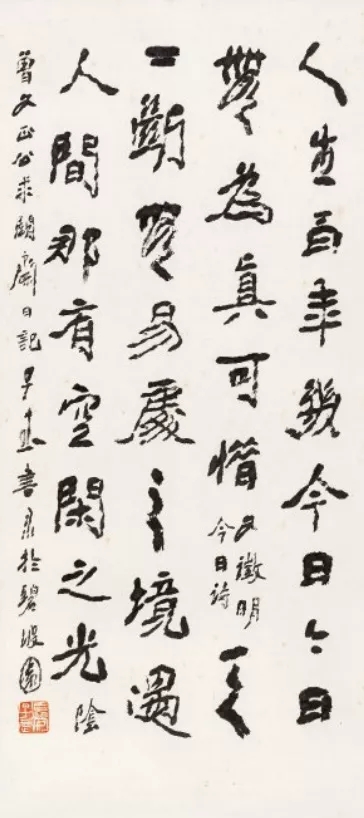 人生百年幾今日今日
無為真可惜
文徵明
今日詩
天
下斷無易處之境遇
人間那有空閑之光陰
曾文正公求闕齋日記 書於碧波園